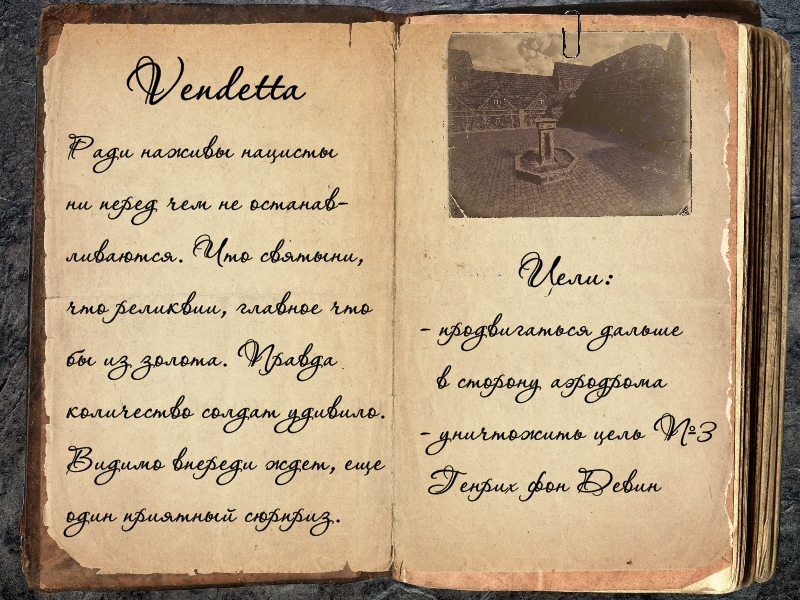 Vendetta
Ради наживы нацисты
ни перед чем не останав-
ливаются. Что святыни,
что реликвии, главное что
бы из золота. Правда
количество солдат удивило.
Видимо впереди ждет, еще
один приятный сюрприз.
Цели:
- продвигаться дальше
в сторону аэродрома
- уничтожить цель №3
Генрих фон Девин